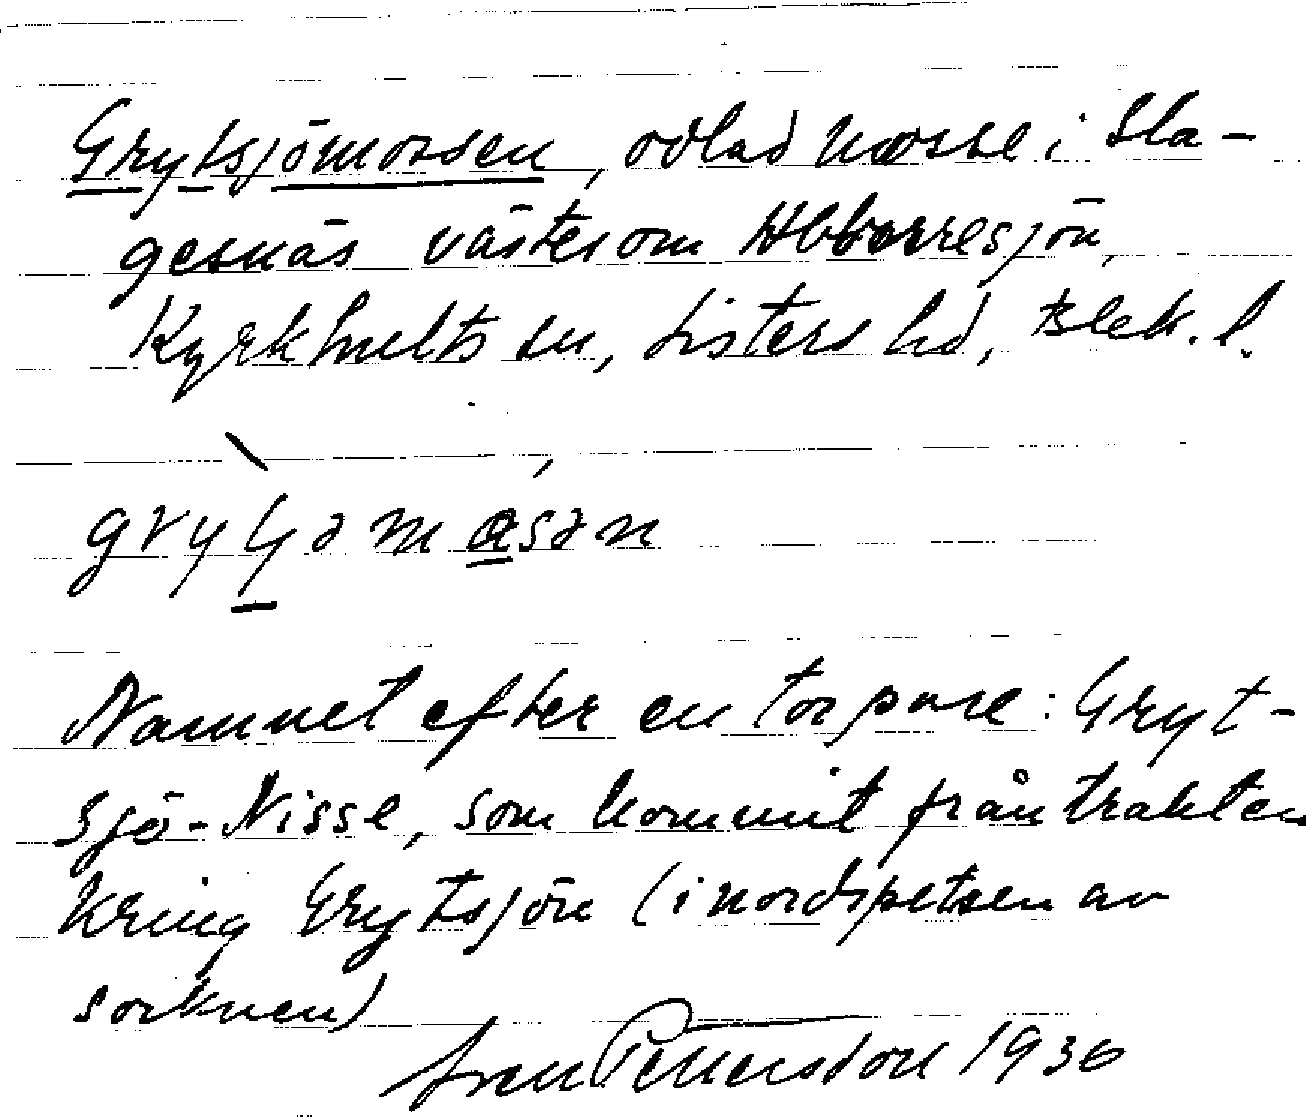 Grytsjömossen, odlad mosse i Sla-
gesnäs väster om Abborresjön,
Kyrkhults sn, Listers hd, Blek. l.
Namnet efter en torpare: Gryt-
sjö-Nisse, som kommit från trakten
kring Grytsjön (i nordspetsen av
socknen)
Pettersson 1936